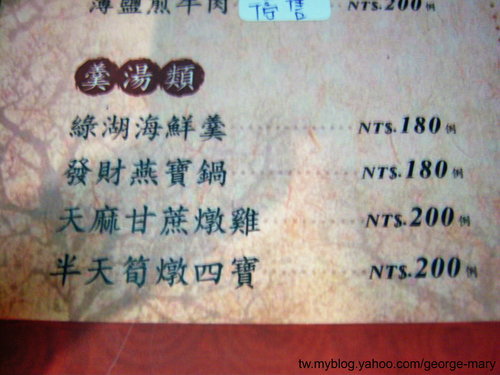 薄鹽煎羊肉 停售 NT$.200例
羹湯類
綠湖海鮮羹 NT$.180例
發財燕寶鍋 NT$.180例
天麻甘蔗燉雞 NT$.200例
半天筍燉四寶 NT$.200例
tw.myblog.yahoo.com/george-mary